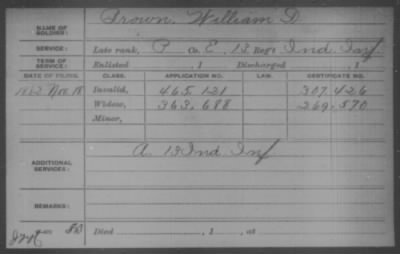 NAME OF SOLDIER: Brown, William D.
SERVICE: Late rank, P Co. E, 13 Reg't Ind. Inf
TERM OF SERVICE: Enlisted , 1 Discharged , 1
DATE OF FILING. CLASS. APPLICATION NO. LAW. CERTIFICATE NO.
Nov. 18 Invalid, 465.121 307.426
Widow, 363.688 269.570
Minor,
ADDITIONAL SERVICES: A. 13 Ind. Inf
REMARKS:
Died , 1 , at